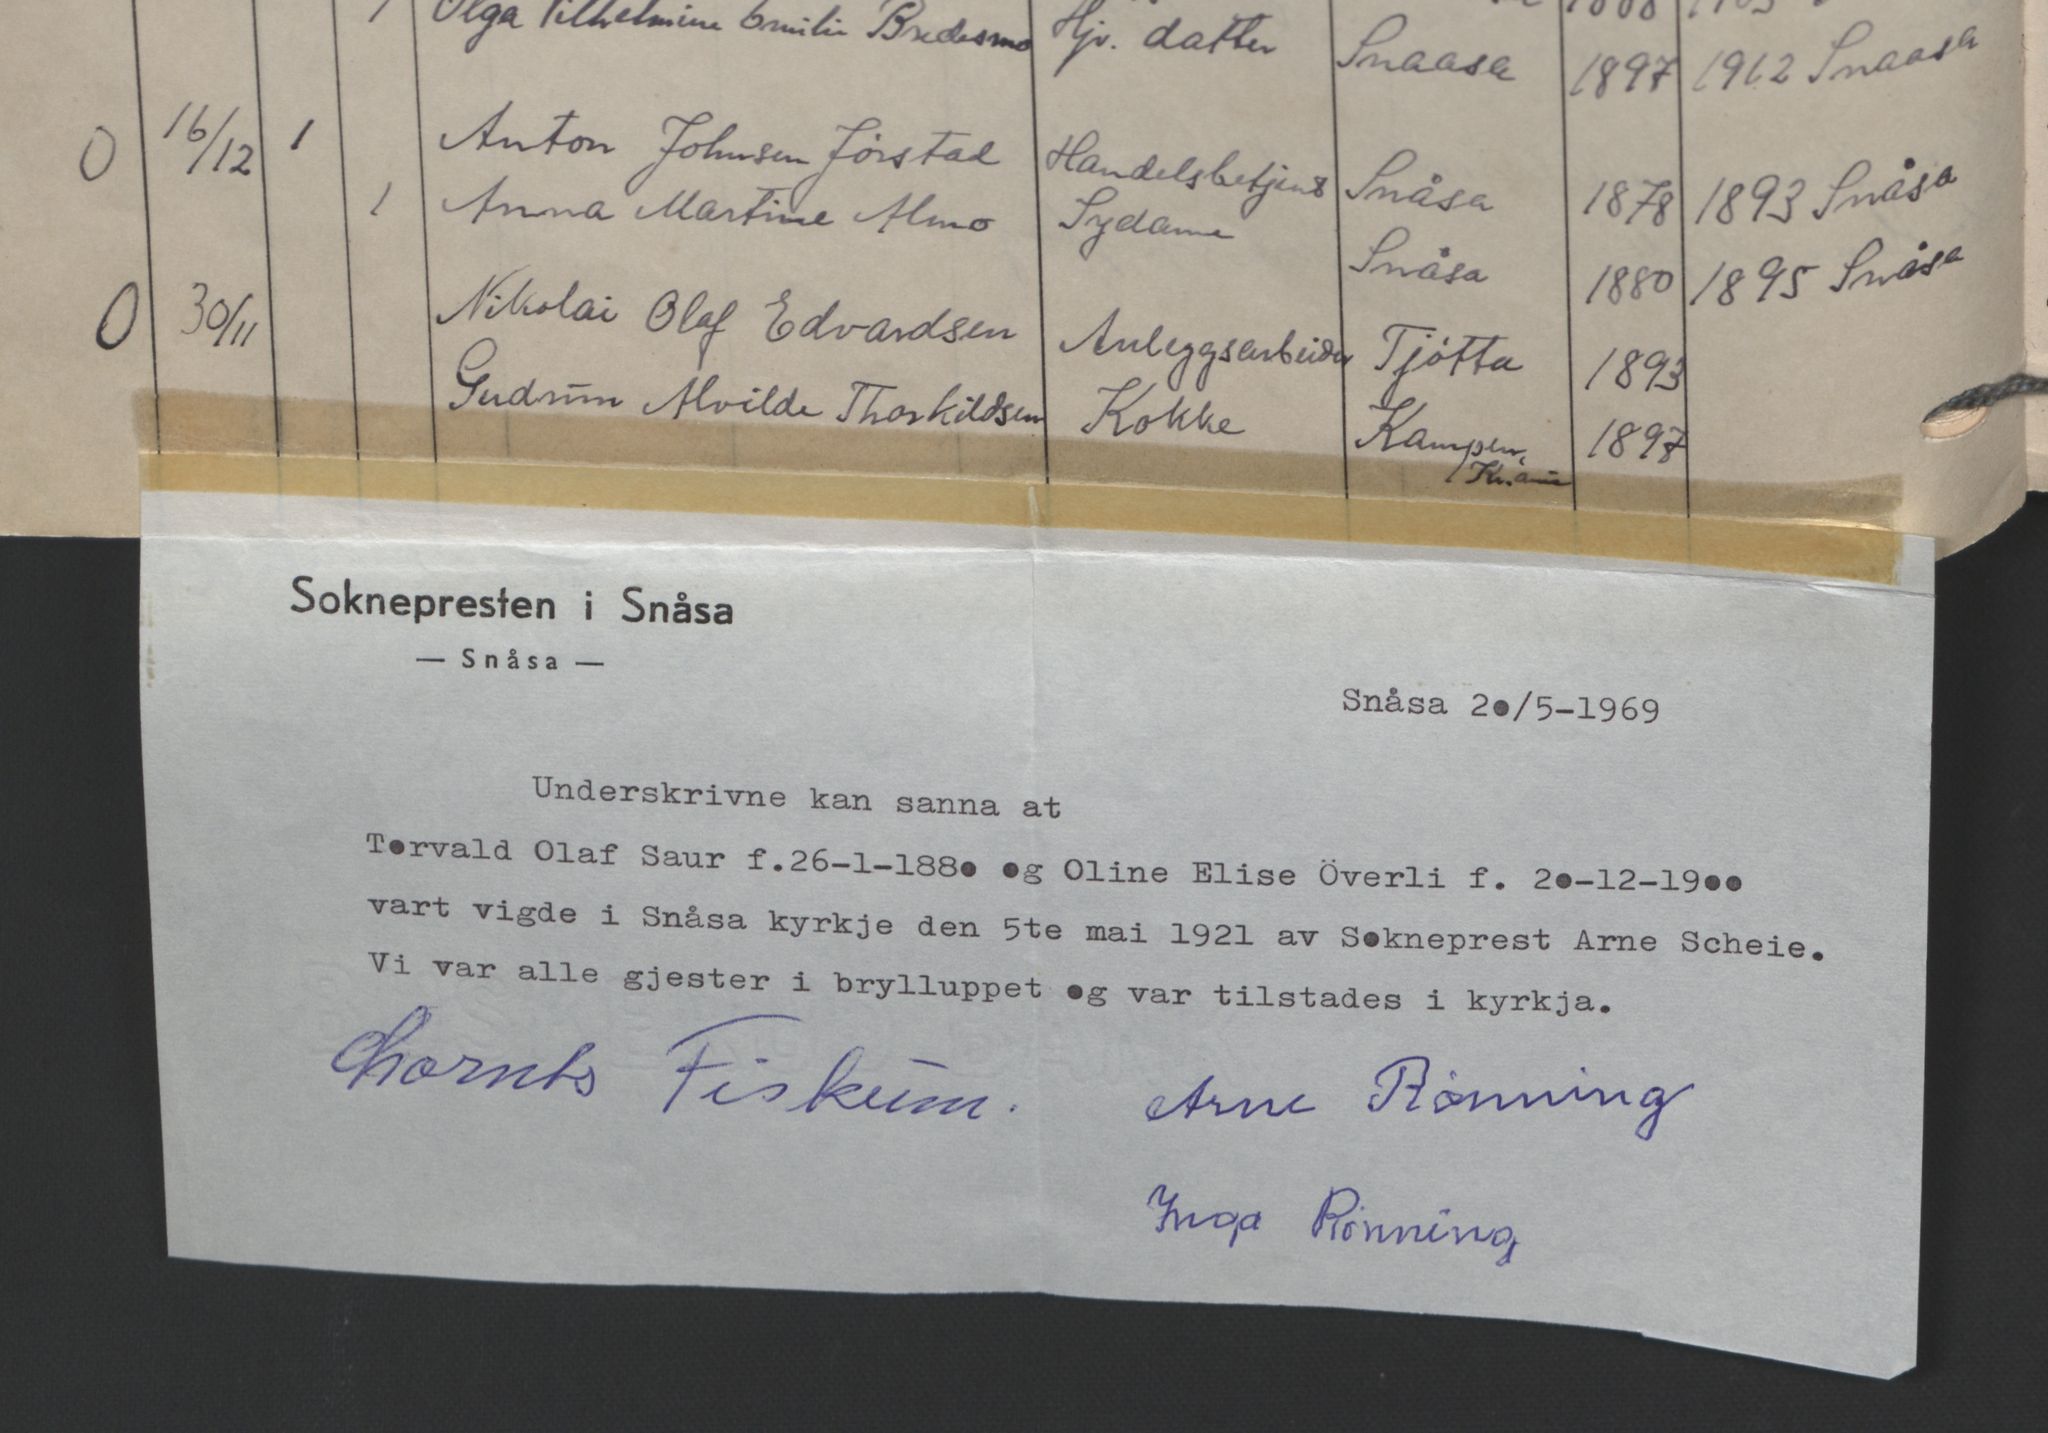 Olga Vilhelmine Emilie Bredesmo Hjv. datter Snaasa 1897 1912 Snaasa
0 16/12 1 Anton Johnsen Jörstad Handelsbetjent Snåsa 1878 1893 Snåsa
1 Anna Martine Almo Sydame Snåsa 1880 1895 Snåsa
0 30/11 Nikolai Olaf Edvardsen Anleggsarbeider Tjötta 1893
Gudrun Alvilde Thorkildsen Kokke Kampen, Kr.ania 1897
Soknepresten i Snåsa
— Snåsa —
Snåsa 20/5-1969
Underskrivne kan sanna at
Torvald Olaf Saur f.26-1-1880 og Oline Elise Överli f. 20-12-1900
vart vigde i Snåsa kyrkje den 5te mai 1921 av Sokneprest Arne Scheie.
Vi var alle gjester i brylluppet og var tilstades i kyrkja.
Fiskum. Arne Rönning
Inga Rönning